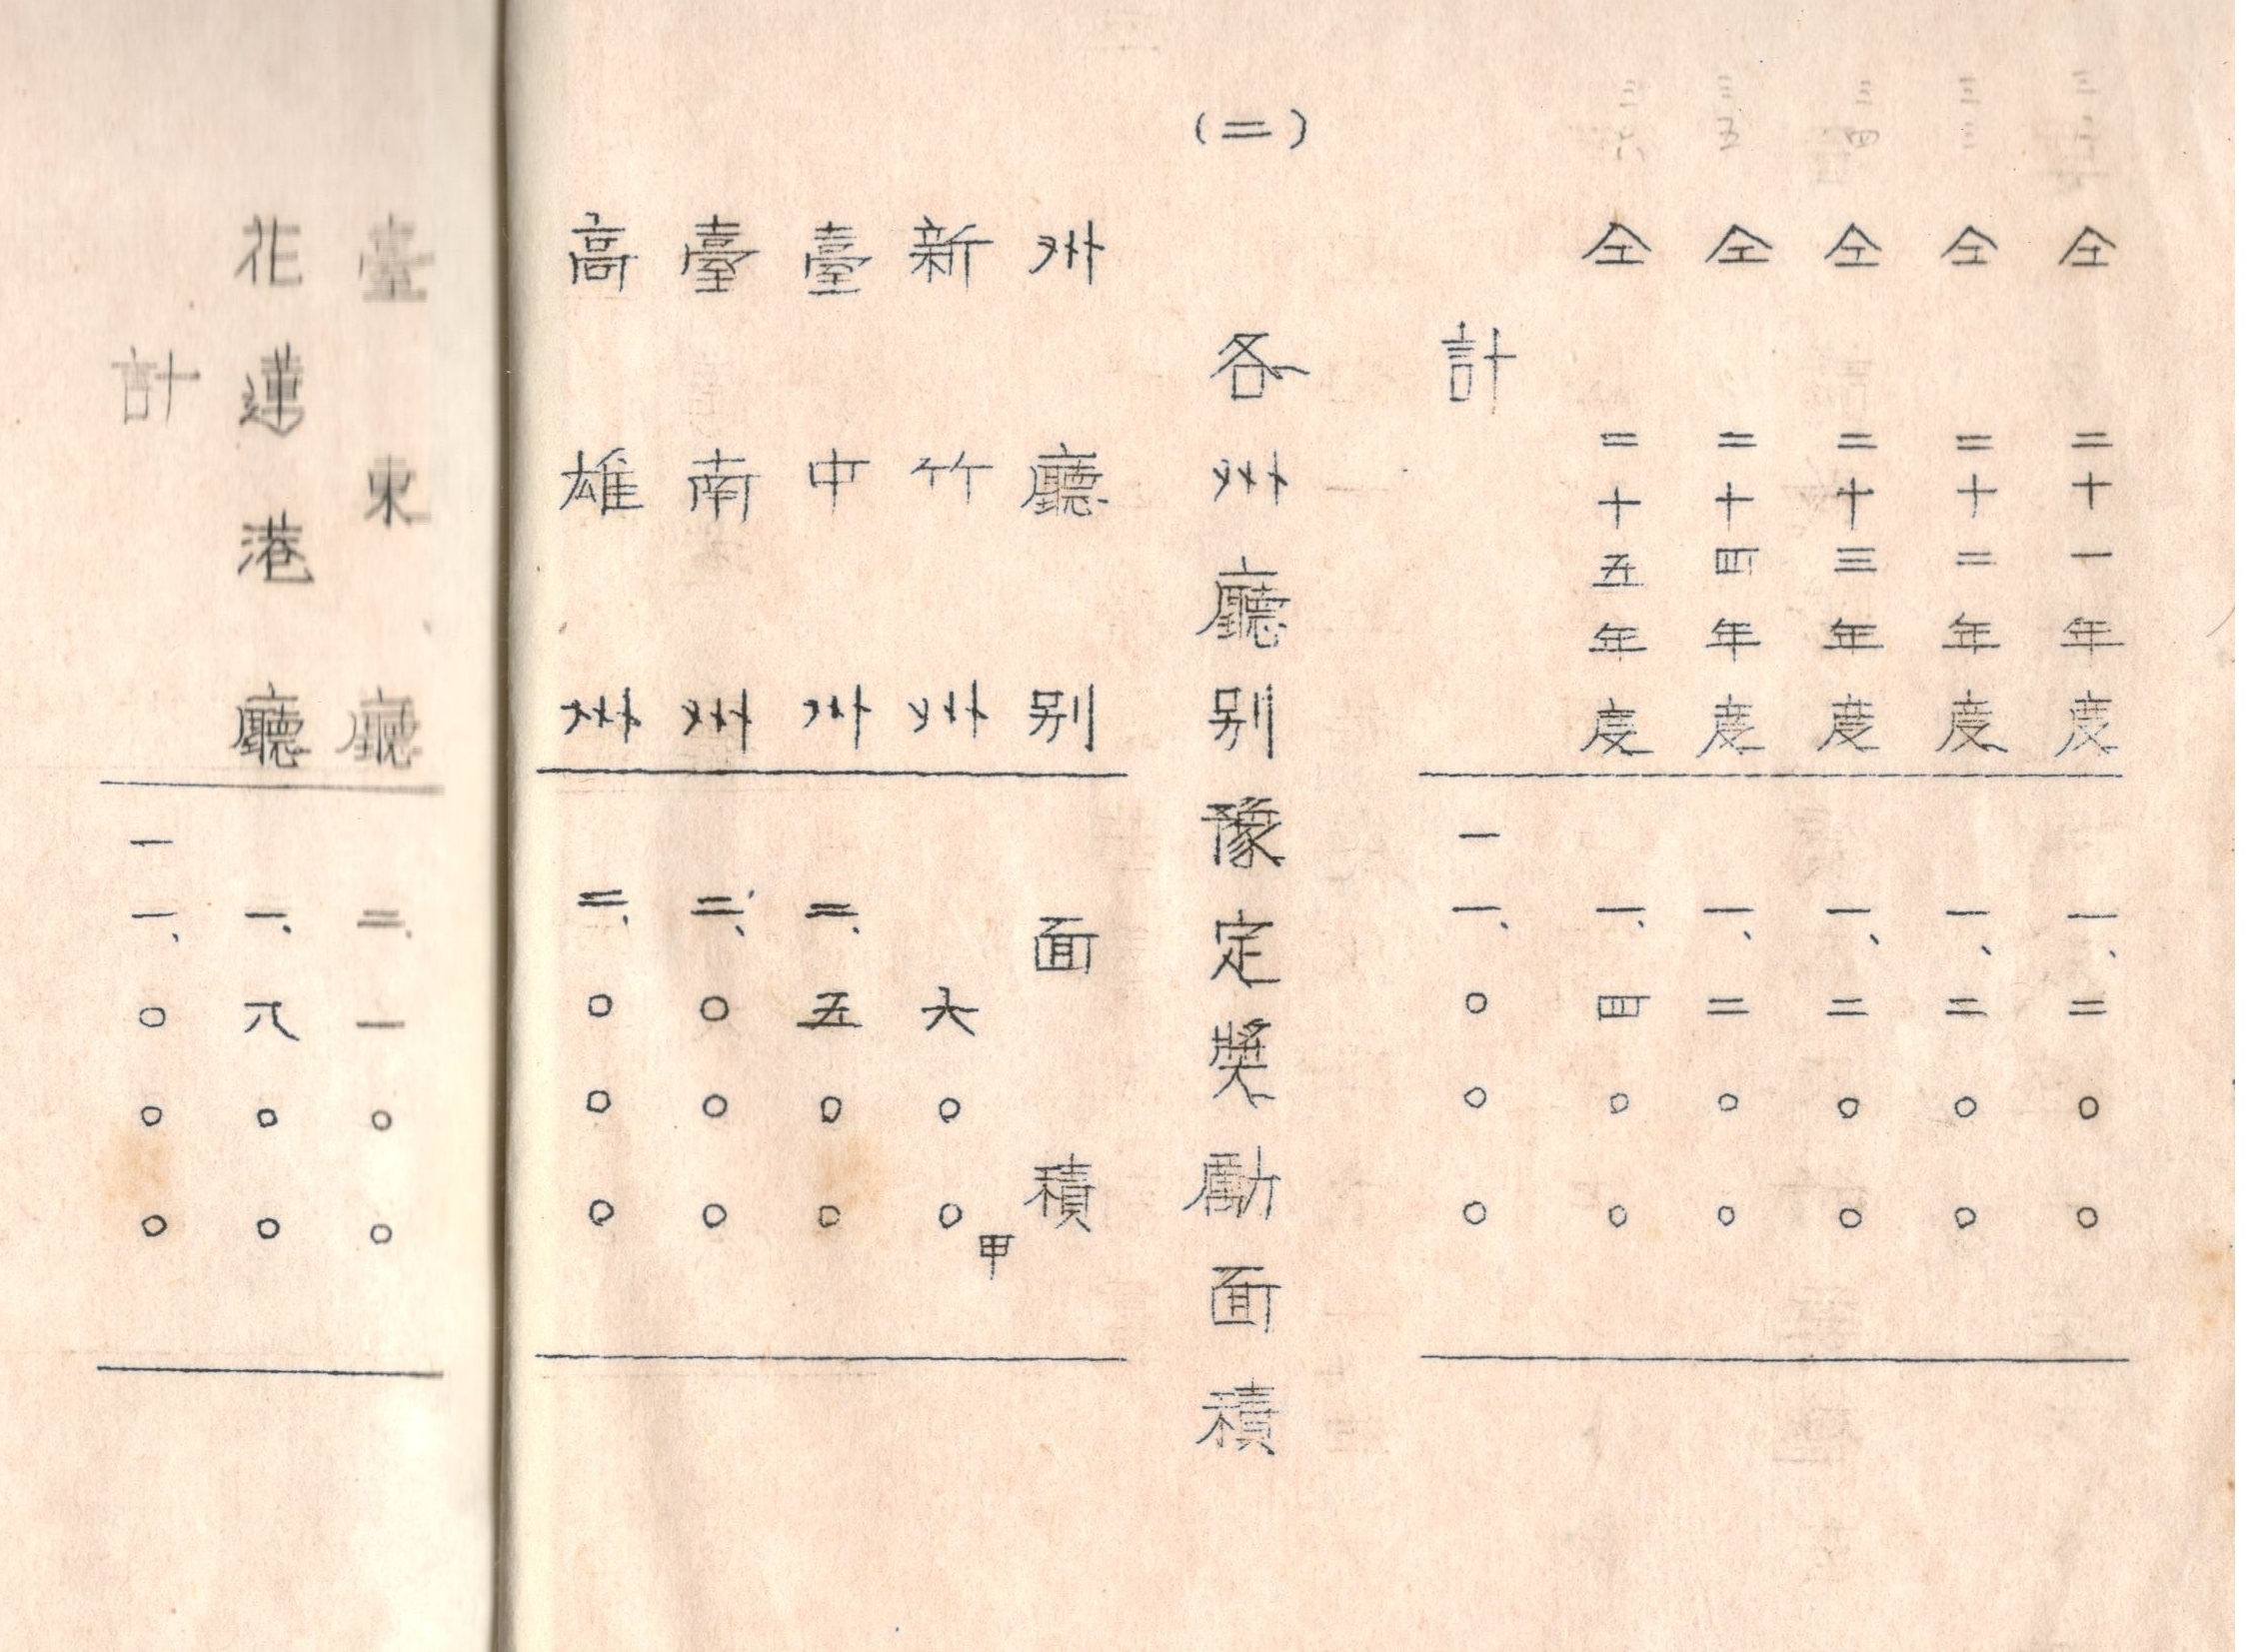 三二
仝二十一年度 一、二〇〇
三三
仝二十二年度 一、二〇〇
三四
仝二十三年度 一、二〇〇
三五
仝二十四年度 一、二〇〇
三六
仝二十五年度 一、四〇〇
計 一一、〇〇〇
(二)各州廳別豫定奬勵面積
州廳別 面積
新竹州 六〇〇甲
臺中州 二、五〇〇
臺南州 二、〇〇〇
高雄州 二、〇〇〇
臺東廳 二、一〇〇
花蓮港廳 一、八〇〇
計 一一、〇〇〇